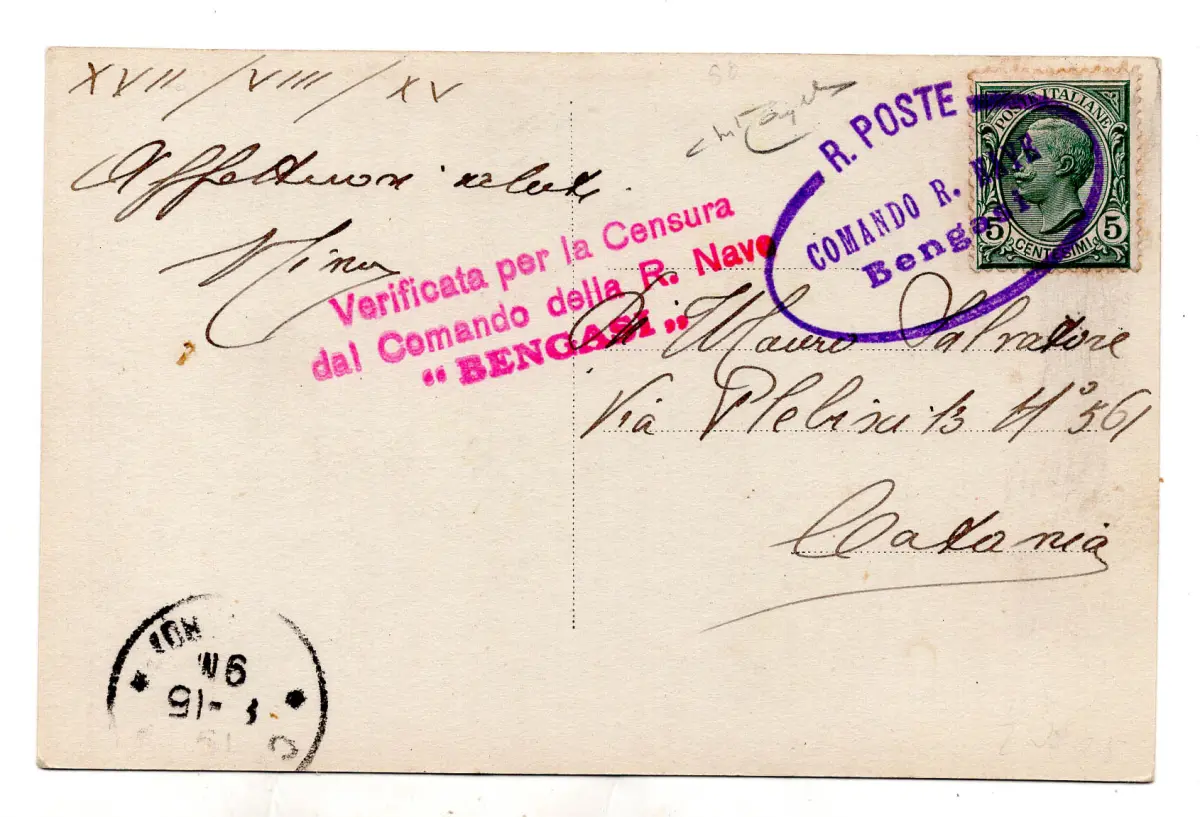 XVII/VIII/XV
Affettuosi saluti.
Nino
Verificata per la Censura
dal Comando della R. Nave
"BENGASI"
R. POSTE
COMANDO R. NAVE
Bengasi
POSTE ITALIANE
5 5
CENTESIMI
Mauro Salvatore
Via Plebiscito N° 561
Catania
9M
-15